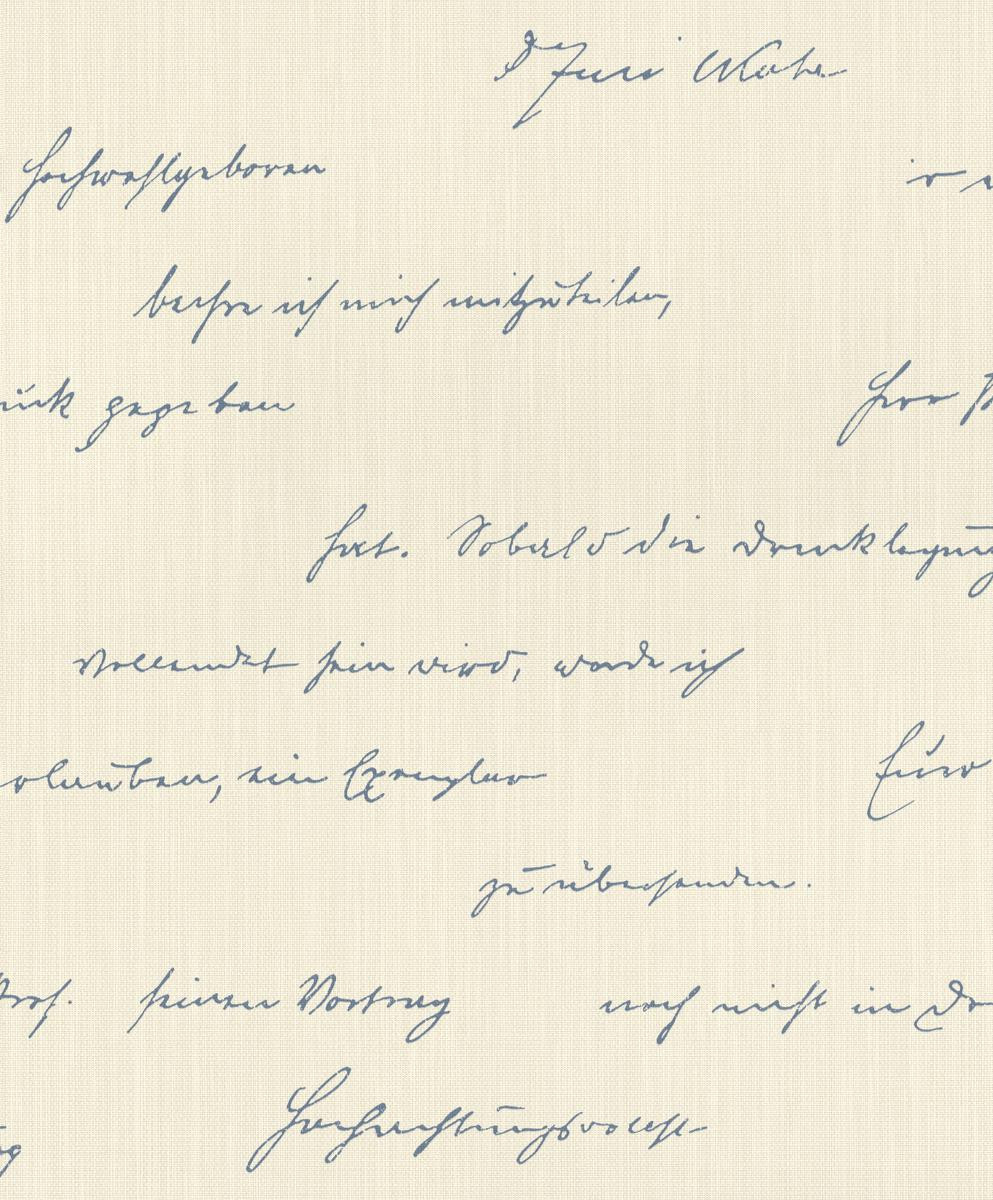 Hochwohlgeboren
beehre ich mich mitzuteilen,
gegeben Herr
hat. Sobald die Drucklegung
vollendet sein wird, werde ich
erlauben, ein Exemplar Euer
zu übersenden.
Prof. seinen Vortrag noch nicht in Dr
Hochachtungsvollst